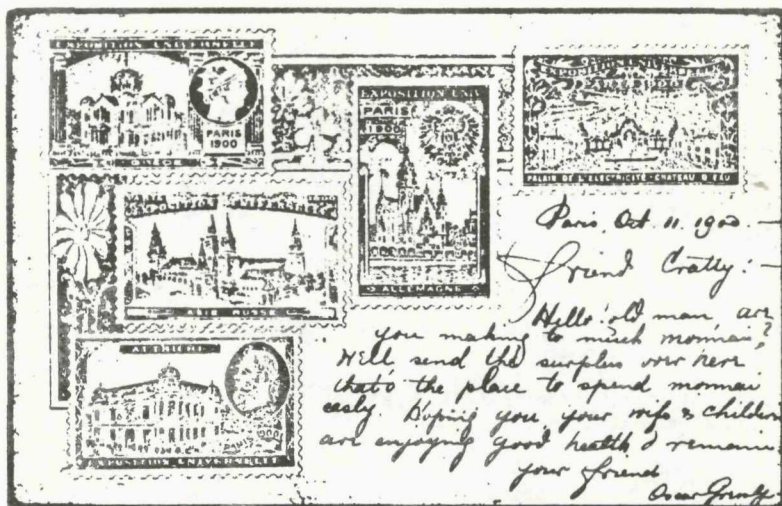 EXPOSITION UNIVERSELLE
PARIS
1900
EXPOSITION UNIV
PARIS
1900
ALLEMAGNE
EXPOSITION UNIVERSELLE
PARIS 1900
PALAIS DE L'ELECTRICITE - CHATEAU D'EAU
EXPOSITION UNIVERSELLE
ASIE RUSSE
AUTRICHE
PARIS 1900
EXPOSITION UNIVERSELLE
Paris, Oct. 11. 1900. —
Friend Cratty: —
Hello! old man are
you making to much monnai?
Well send the surplus over here
that's the place to spend monnai
easly. Hoping you, your wife & children
are enjoying good health I remain
your friend
Oscar